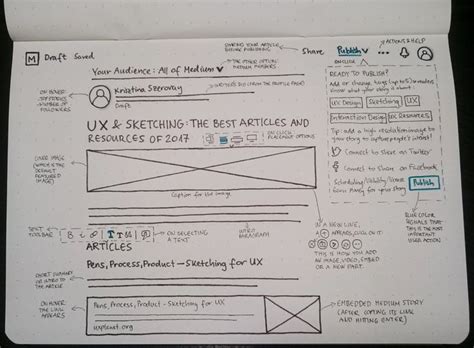 SHARING YOUR ARTICLE
BEFORE PUBLISHING
ACTIONS & HELP
M Draft Saved
Share Publish
ENGLISH
THE OTHER OPTION:
MEDIUM MEMBERS
Your Audience: All of Medium
READY TO PUBLISH?
Add or change tags (up to 5) so readers
know what your story is about:
ON HOVER:
NUMBER OF
FOLLOWERS
Kristina Szerovay
(FROM THE PROFILE PAGE)
Draft
UX Design Sketching UX
Interaction Design UX Resources
UX & SKETCHING: THE BEST ARTICLES AND
RESOURCES OF 2017
ON CLICK
PLACEMENT OPTIONS
Tip: add a high resolution image to
your story to capture people's interest
Connect to share on Twitter
Connect to Share on Facebook
COVER IMAGE
(WHICH IS THE
DEFAULT
FEATURED
IMAGE)
Scheduling/Visibility/
from Many for your story
Publish
Caption for the image
BLUE COLOR
SIGNALS THAT
THIS IS THE MOST
IMPORTANT
USER ACTION
TEXT
TOOLBAR
B i T T
ON SELECTING
A TEXT
INTRO
PARAGRAPH
IN A NEW LINE,
A + APPEARS, CLICK ON IT
THIS IS HOW YOU ADD
AN IMAGE, VIDEO, EMBED
OR A NEW PART.
ARTICLES
Pens, Process, Product → Sketching for UX
SHORT SUMMARY
OR INTRO TO
THE ARTICLE
ON HOVER
THE LINK
APPEARS
Pens, Process, Product - Sketching for UX
uxplanet.org
EMBEDDED MEDIUM STORY
(AFTER COPYING ITS LINK
AND HITTING ENTER)